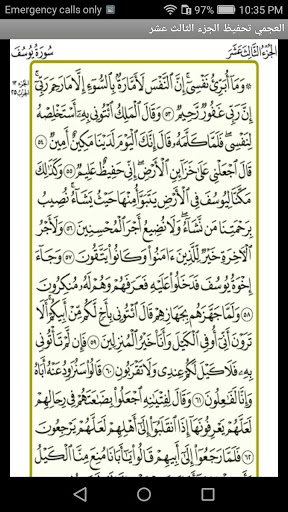 Emergency calls only
10:35 PM
العجمي تحفيظ الجزء الثالث عشر
الجزء الثالث عشر
سورة يوسف
وَمَا أُبَرِّئُ نَفْسِي إِنَّ النَّفْسَ لَأَمَّارَةٌ بِالسُّوءِ إِلَّا مَا رَحِمَ رَبِّي
إِنَّ رَبِّي غَفُورٌ رَّحِيمٌ ٥٣ وَقَالَ الْمَلِكُ ائْتُونِي بِهِ أَسْتَخْلِصْهُ
لِنَفْسِي فَلَمَّا كَلَّمَهُ قَالَ إِنَّكَ الْيَوْمَ لَدَيْنَا مَكِينٌ أَمِينٌ ٥٤
قَالَ اجْعَلْنِي عَلَى خَزَائِنِ الْأَرْضِ إِنِّي حَفِيظٌ عَلِيمٌ ٥٥ وَكَذَلِكَ
مَكَّنَّا لِيُوسُفَ فِي الْأَرْضِ يَتَبَوَّأُ مِنْهَا حَيْثُ يَشَاءُ نُصِيبُ
بِرَحْمَتِنَا مَن نَّشَاءُ وَلَا نُضِيعُ أَجْرَ الْمُحْسِنِينَ ٥٦ وَلَأَجْرُ
الْآخِرَةِ خَيْرٌ لِّلَّذِينَ آمَنُوا وَكَانُوا يَتَّقُونَ ٥٧ وَجَاءَ
إِخْوَةُ يُوسُفَ فَدَخَلُوا عَلَيْهِ فَعَرَفَهُمْ وَهُمْ لَهُ مُنكِرُونَ
٥٨ وَلَمَّا جَهَّزَهُم بِجَهَازِهِمْ قَالَ ائْتُونِي بِأَخٍ لَّكُم مِّنْ أَبِيكُمْ أَلَا
تَرَوْنَ أَنِّي أُوفِي الْكَيْلَ وَأَنَا خَيْرُ الْمُنزِلِينَ ٥٩ فَإِن لَّمْ تَأْتُونِي
بِهِ فَلَا كَيْلَ لَكُمْ عِندِي وَلَا تَقْرَبُونِ ٦٠ قَالُوا سَنُرَاوِدُ عَنْهُ أَبَاهُ
وَإِنَّا لَفَاعِلُونَ ٦١ وَقَالَ لِفِتْيَانِهِ اجْعَلُوا بِضَاعَتَهُمْ فِي رِحَالِهِمْ
لَعَلَّهُمْ يَعْرِفُونَهَا إِذَا انقَلَبُوا إِلَى أَهْلِهِمْ لَعَلَّهُمْ يَرْجِعُونَ
٦٢ فَلَمَّا رَجَعُوا إِلَى أَبِيهِمْ قَالُوا يَا أَبَانَا مُنِعَ مِنَّا الْكَيْلُ